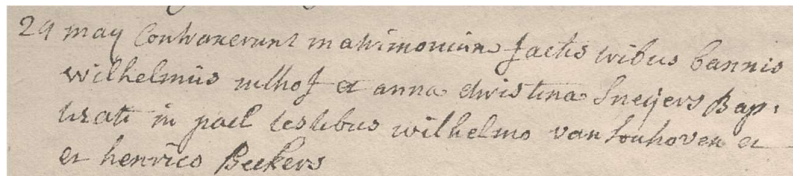 29 may Contraxerunt matrimonium factis tribus bannis
wilhelmus nelhof et anna christina Sneijers Bap-
tisati in pael testibus wilhelmo van houhoven et
et henrico Beckers